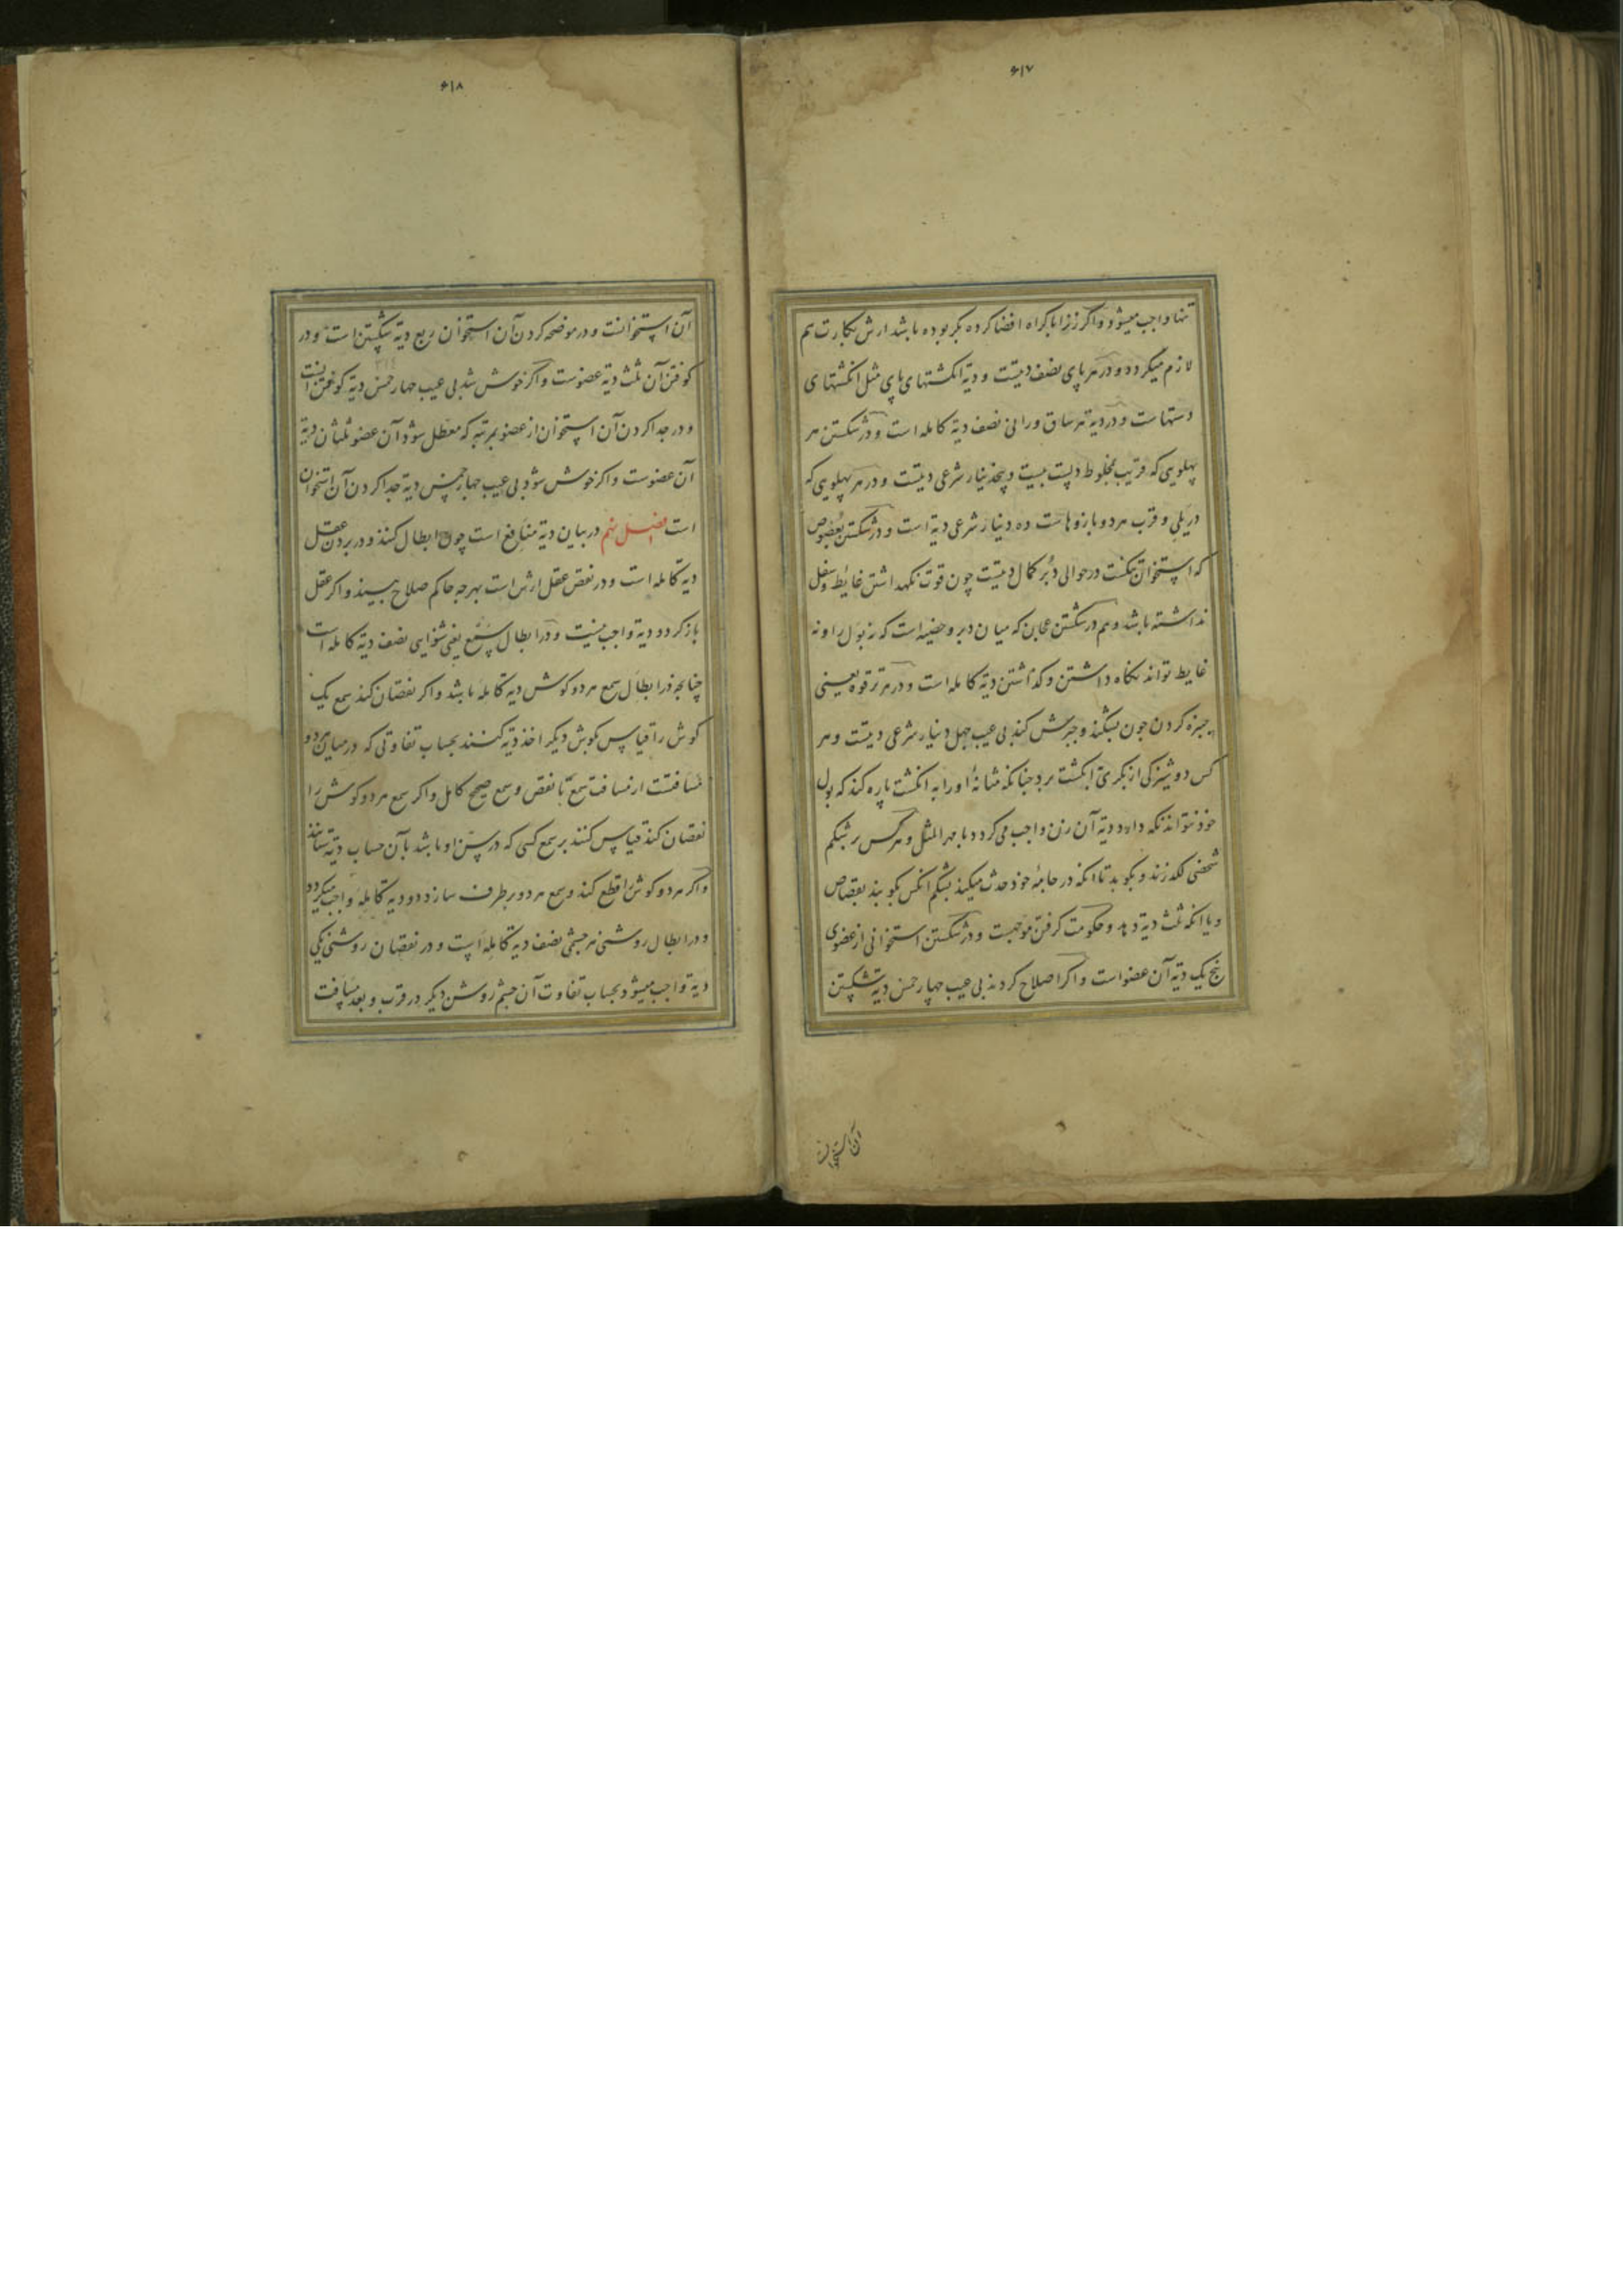 ۶۱۷
تنها واجب میشود و اکر زنرا باکراه افضا کرده بکر بوده باشد ارش بکارت هم
لازم میکردد و در هر پای نصف دیتست و دیة انکشتهای پای مثل انکشتهای
دستهاست و در دیة هر ساق و رانی نصف دیة کامله است و در شکستن هر
پهلویی که قریب مخلوط دلست بیست و پنج دینار شرعی دیتست و در هر پهلویی که
در پلی و قرب هر دو بازوهاست ده دینار شرعی دیة است و در شکستن بعصوص
که استخوان تنکست در حوالی دُبُر کمال دیتست چون قوت نکهداشتن غایط و سفل
نداشته باشد و هم در شکستن عجان که میان دبر و خصیه است که نه بول را و نه
غایط تواند نکاه داشتن و کذاشتن دیة کامله است و در هر ترقوه یعنی
چنبره کردن چون بشکند و جبرش کند بی عیب چهل دینار شرعی دیتست و هر
کس دوشیزکی از بکری بانکشت برد چنانکه مثانهٔ او را به انکشت پاره کند که بول
خود نتواند نکه دارد دیة آن زن واجب می کردد با مهر المثل و هر کس بر شکم
شخصی لکد زند و بکوبد تا آنکه در جامهٔ خود حدث میکند بشکم انکس کوبند بقصاص
و یا انکه ثلث دیة دهد و حکومت کرفتن موجبست و در شکستن استخوانی از عضوی
پنج یک دیة آن عضو است و اکر اصلاح کردند بی عیب چهار خمس دیة شکستن
آن استخوان
۶۱۸
آن استخوانست و در موضحه کردن آن استخوان ربع دیة شکستن است و در
کوفتن آن ثلث دیة عضوست و اکر خوش شد بی عیب چهار خمس دیة کوفتن آنست
و در جدا کردن آن استخوان از عضو بمرتبه که معطل شود آن عضو ثلثان دیة
آن عضوست و اکر خوش شود بی عیب چهار خمس دیة جدا کردن آن استخوان
است فصل نهم در بیان دیة منافع است چون ابطال کنند و در بردن عقل
دیة کامله است و در نقص عقل ارش است بهرچه حاکم صلاح بیند و اکر عقل
باز کردد دیة واجب نیست و در ابطال سمع یعنی شنوایی نصف دیة کامله است
چنانچه در ابطال سمع هر دو کوش دیة کامله باشد و اکر نقصان کند سمع یک
کوش را قیاس بکوش دیکر اخذ دیة کنند بحساب تفاوتی که در میان هر دو
مسافتست از مسافت سمع با نقص و سمع صحیح کامل و اکر سمع هر دو کوش را
نقصان کند قیاس کنند بر سمع کسی که در سن او باشد بآن حساب دیة ستانند
و اکر هر دو کوش را قطع کند و سمع هر دو برطرف سازد دو دیة کامله واجب میکردد
و در ابطال روشنی هر چشمی نصف دیة کامله است و در نقصان روشنی یکی
دیة واجب میشود بحساب تفاوت آن چشم روشن دیکر در قرب و بعد مسافت